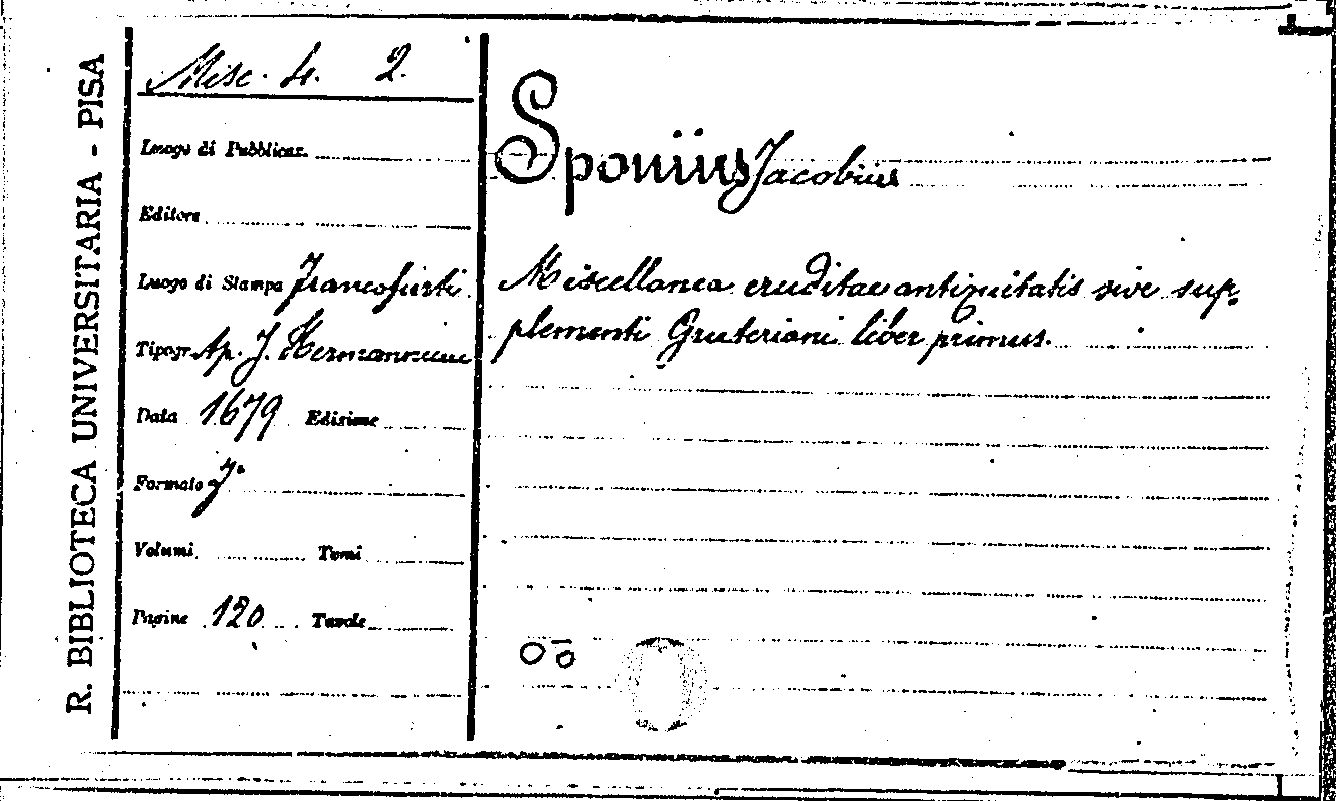 R. BIBLIOTECA UNIVERSITARIA - PISA
Misc. 4. 2.
Luogo di Pubblicaz.
Editore
Luogo di Stampa Francofurti
Tipogr. Ap. J. Hermannum
Data 1679 Edizione
Formato f°
Volumi Tomi
Pagine 120 Tavole
Sponius Jacobius
Miscellanea eruditae antiquitatis sive sup-
plementi Gruteriani liber primus.